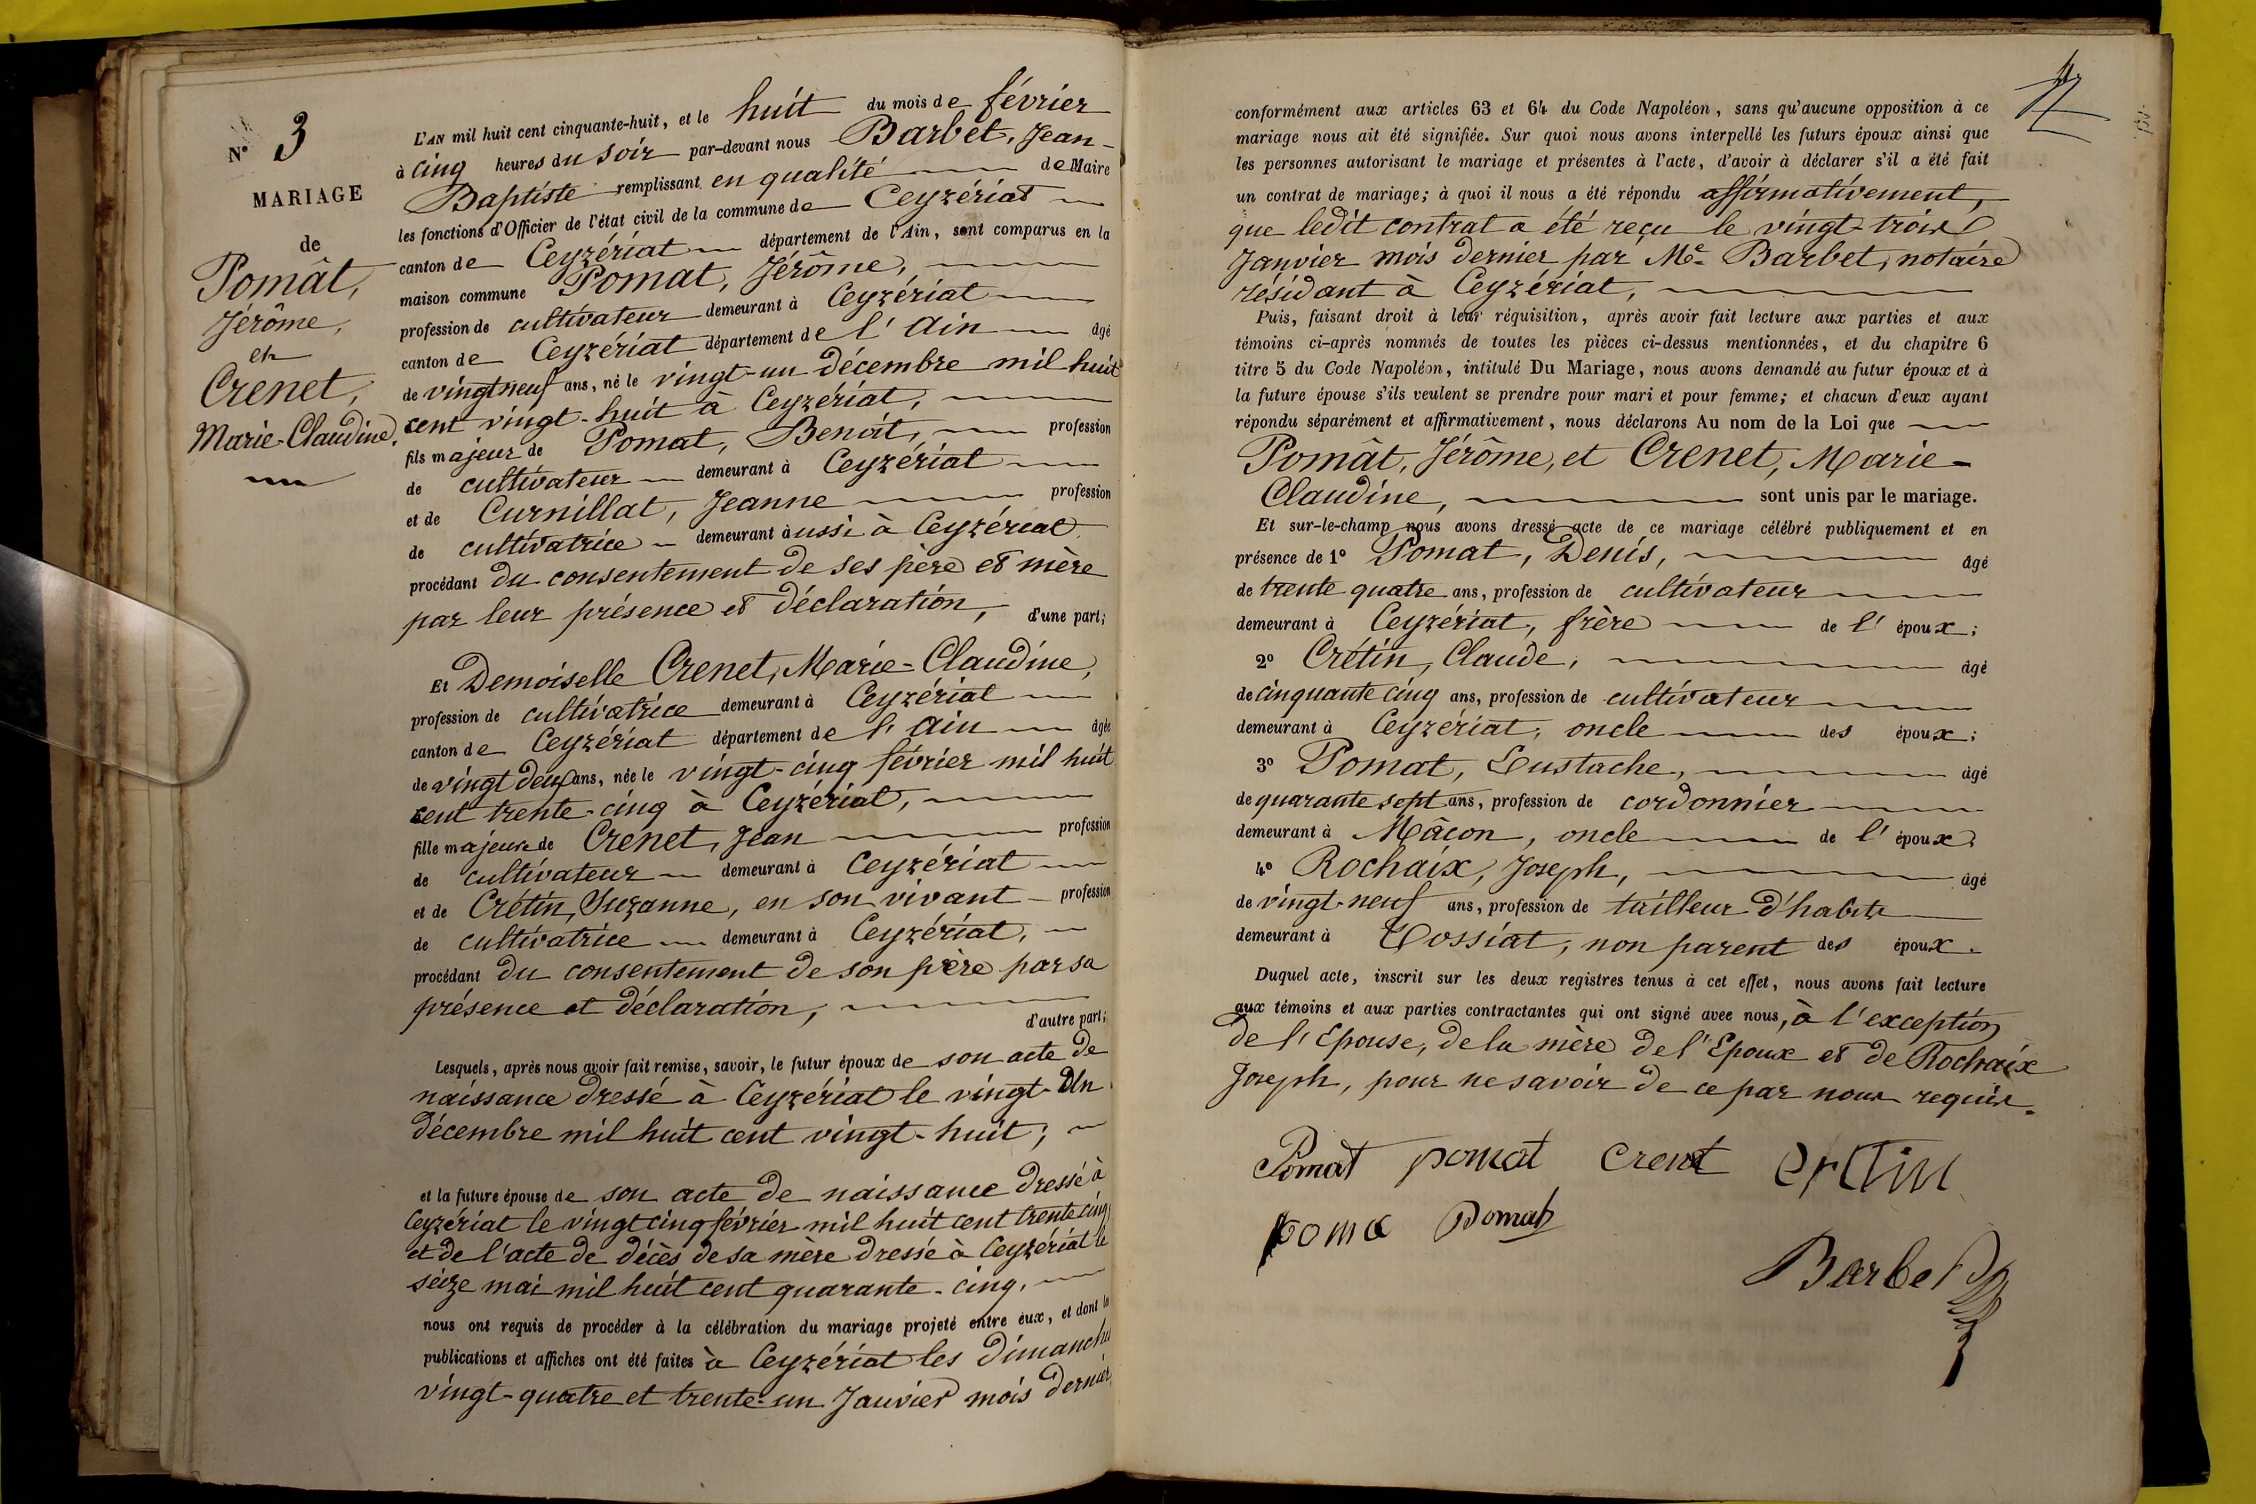 N° 3
MARIAGE
de
Pomât,
Jérôme,
et
Crenet,
Marie-Claudine.
L'AN mil huit cent cinquante-huit, et le huit du mois de février
à cinq heures du soir par-devant nous Barbet, Jean-
Baptiste remplissant en qualité de Maire
les fonctions d'Officier de l'état civil de la commune de Ceyzériat
canton de Ceyzériat département de l'Ain, sont comparus en la
maison commune Pomat, Jérôme,
profession de cultivateur demeurant à Ceyzériat
canton de Ceyzériat département de l'Ain âgé
de vingt neuf ans, né le vingt-un décembre mil huit
cent vingt-huit à Ceyzériat,
fils majeur de Pomat, Benoît, profession
de cultivateur demeurant à Ceyzériat
et de Curnillat, Jeanne profession
de cultivatrice demeurant aussi à Ceyzériat
procédant du consentement de ses père et mère
par leur présence et déclaration, d'une part;
Et Demoiselle Crenet, Marie-Claudine,
profession de cultivatrice demeurant à Ceyzériat
canton de Ceyzériat département de l'Ain âgée
de vingt deux ans, née le vingt-cinq février mil huit
cent trente-cinq à Ceyzériat,
fille majeure de Crenet, Jean profession
de cultivateur demeurant à Ceyzériat
et de Crétin, Suzanne, en son vivant profession
de cultivatrice demeurant à Ceyzériat,
procédant du consentement de son père par sa
présence et déclaration,
d'autre part;
Lesquels, après nous avoir fait remise, savoir, le futur époux de son acte de
naissance dressé à Ceyzériat le vingt-Un
décembre mil huit cent vingt-huit;
et la future épouse de son acte de naissance dressé à
Ceyzériat le vingt cinq février mil huit cent trente cinq
et de l'acte de décès de sa mère dressé à Ceyzériat le
seize mai mil huit cent quarante-cinq,
nous ont requis de procéder à la célébration du mariage projeté entre eux, et dont les
publications et affiches ont été faites à Ceyzériat les dimanches
vingt-quatre et trente-un Janvier mois dernier,
conformément aux articles 63 et 64 du Code Napoléon, sans qu'aucune opposition à ce
mariage nous ait été signifiée. Sur quoi nous avons interpellé les futurs époux ainsi que
les personnes autorisant le mariage et présentes à l'acte, d'avoir à déclarer s'il a été fait
un contrat de mariage; à quoi il nous a été répondu affirmativement,
que ledit contrat a été reçu le vingt-trois
Janvier mois dernier par Me Barbet, notaire
résidant à Ceyzériat,
Puis, faisant droit à leur réquisition, après avoir fait lecture aux parties et aux
témoins ci-après nommés de toutes les pièces ci-dessus mentionnées, et du chapitre 6
titre 5 du Code Napoléon, intitulé Du Mariage, nous avons demandé au futur époux et à
la future épouse s'ils veulent se prendre pour mari et pour femme; et chacun d'eux ayant
répondu séparément et affirmativement, nous déclarons Au nom de la Loi que
Pomât, Jérôme, et Crenet, Marie-
Claudine, sont unis par le mariage.
Et sur-le-champ nous avons dressé acte de ce mariage célébré publiquement et en
présence de 1° Pomat, Denis, âgé
de trente quatre ans, profession de cultivateur
demeurant à Ceyzériat, frère de l'époux;
2° Crétin, Claude, âgé
de cinquante cinq ans, profession de cultivateur
demeurant à Ceyzériat, oncle des époux;
3° Pomat, Eustache, âgé
de quarante sept ans, profession de cordonnier
demeurant à Mâcon, oncle de l'époux
4° Rochaix, Joseph, âgé
de vingt-neuf ans, profession de tailleur d'habits
demeurant à Tossiat, non parent des époux.
Duquel acte, inscrit sur les deux registres tenus à cet effet, nous avons fait lecture
aux témoins et aux parties contractantes qui ont signé avec nous, à l'exception
de l'Epouse, de la mère de l'Epoux et de Rochaix
Joseph, pour ne savoir de ce par nous requis.
Pomat pomat crenet crétin
poma Pomat
Barbet